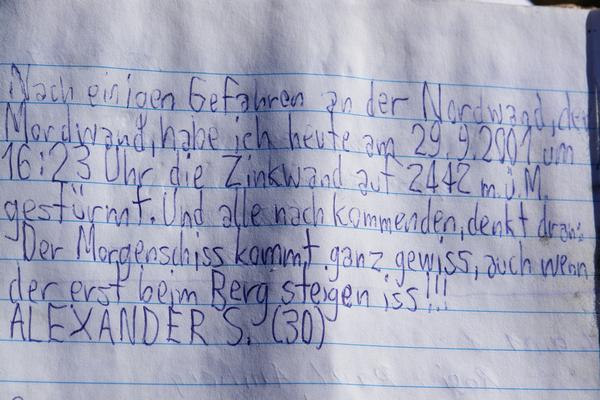 Nach einigen Gefahren an der Nordwand, der
Mordwand, habe ich heute am 29.9.2001 um
16:23 Uhr die Zinkwand auf 2442 m.ü.M.
gestürmt. Und alle nachkommenden, denkt dran:
Der Morgenschiss kommt ganz gewiss, auch wenn
der erst beim Berg steigen iss!!!
ALEXANDER S. (30)